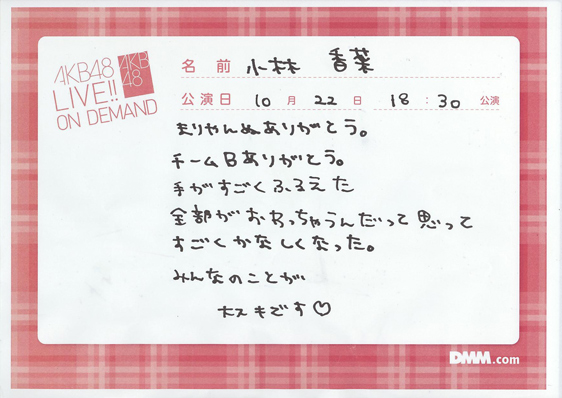 AKB48
LIVE!!
ON DEMAND
AKB
48
名 前 小林 香菜
公演日 10 月 22 日 18 : 30 公演
まりやんぬありがとう。
チームBありがとう。
手がすごくふるえた
全部がおわっちゃうんだって思って
すごくかなしくなった。
みんなのことが
大スキです♡
DMM.com